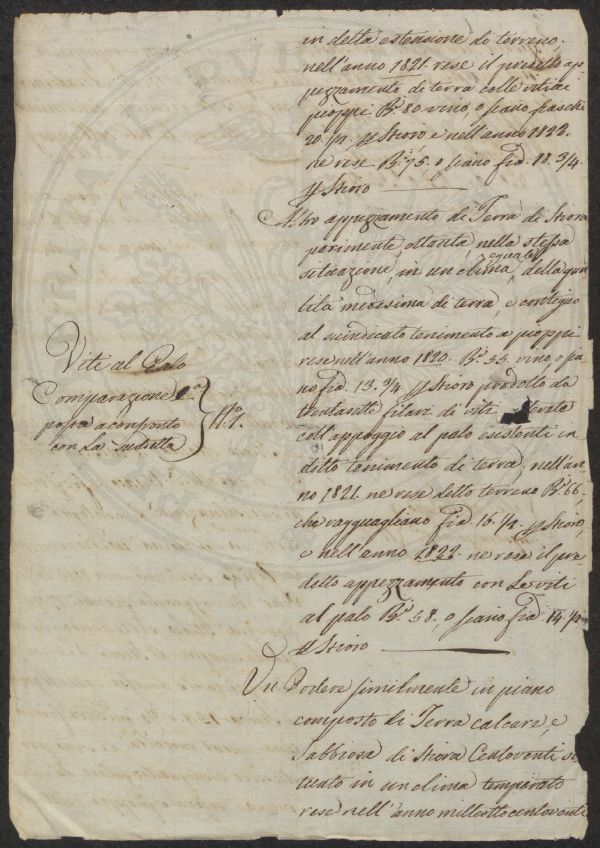 in detta estensione di terreno.
nell'anno 1821 rese il predetto ap
pezzamento di terra colle viti ai
pioppi B.i 80. vino o siano fiaschi
20. p. Stioro, e nell'anno 1822.
ne rese B.i 75. o siano fia. 18. 3/4
Stioro
Altro appezzamento di Terra di Stiora
parimente ottanta, nella stessa
situazione, in un clima eguale, della quan
tità medesima di terra, e contiguo
al suindicato tenimento a pioppi
rese nell'anno 1820. B.i 55. vino o sia
no fia. 13. 3/4 Stioro prodotto da
trentasette filari di viti
coll'appoggio al palo esistenti in
detto tenimento di terra, nell'an
no 1821. ne rese detto terreno B.i 66.
che ragguagliano fia. 16. 1/2 Stioro,
e nell'anno 1822. ne rese il pre
detto appezzamento con le viti
al palo B.i 58. o siano fia. 14. 1/2
Stioro
Viti al Palo
Comparazione 1.a
posta a confronto
con la sudetta
N.o 1.
Un Podere similmente in piano
composto di Terra calcare, e
Sabbiosa di Stiora Centoventi si
tuato in un clima temperato
rese nell'anno milleottocentoventi